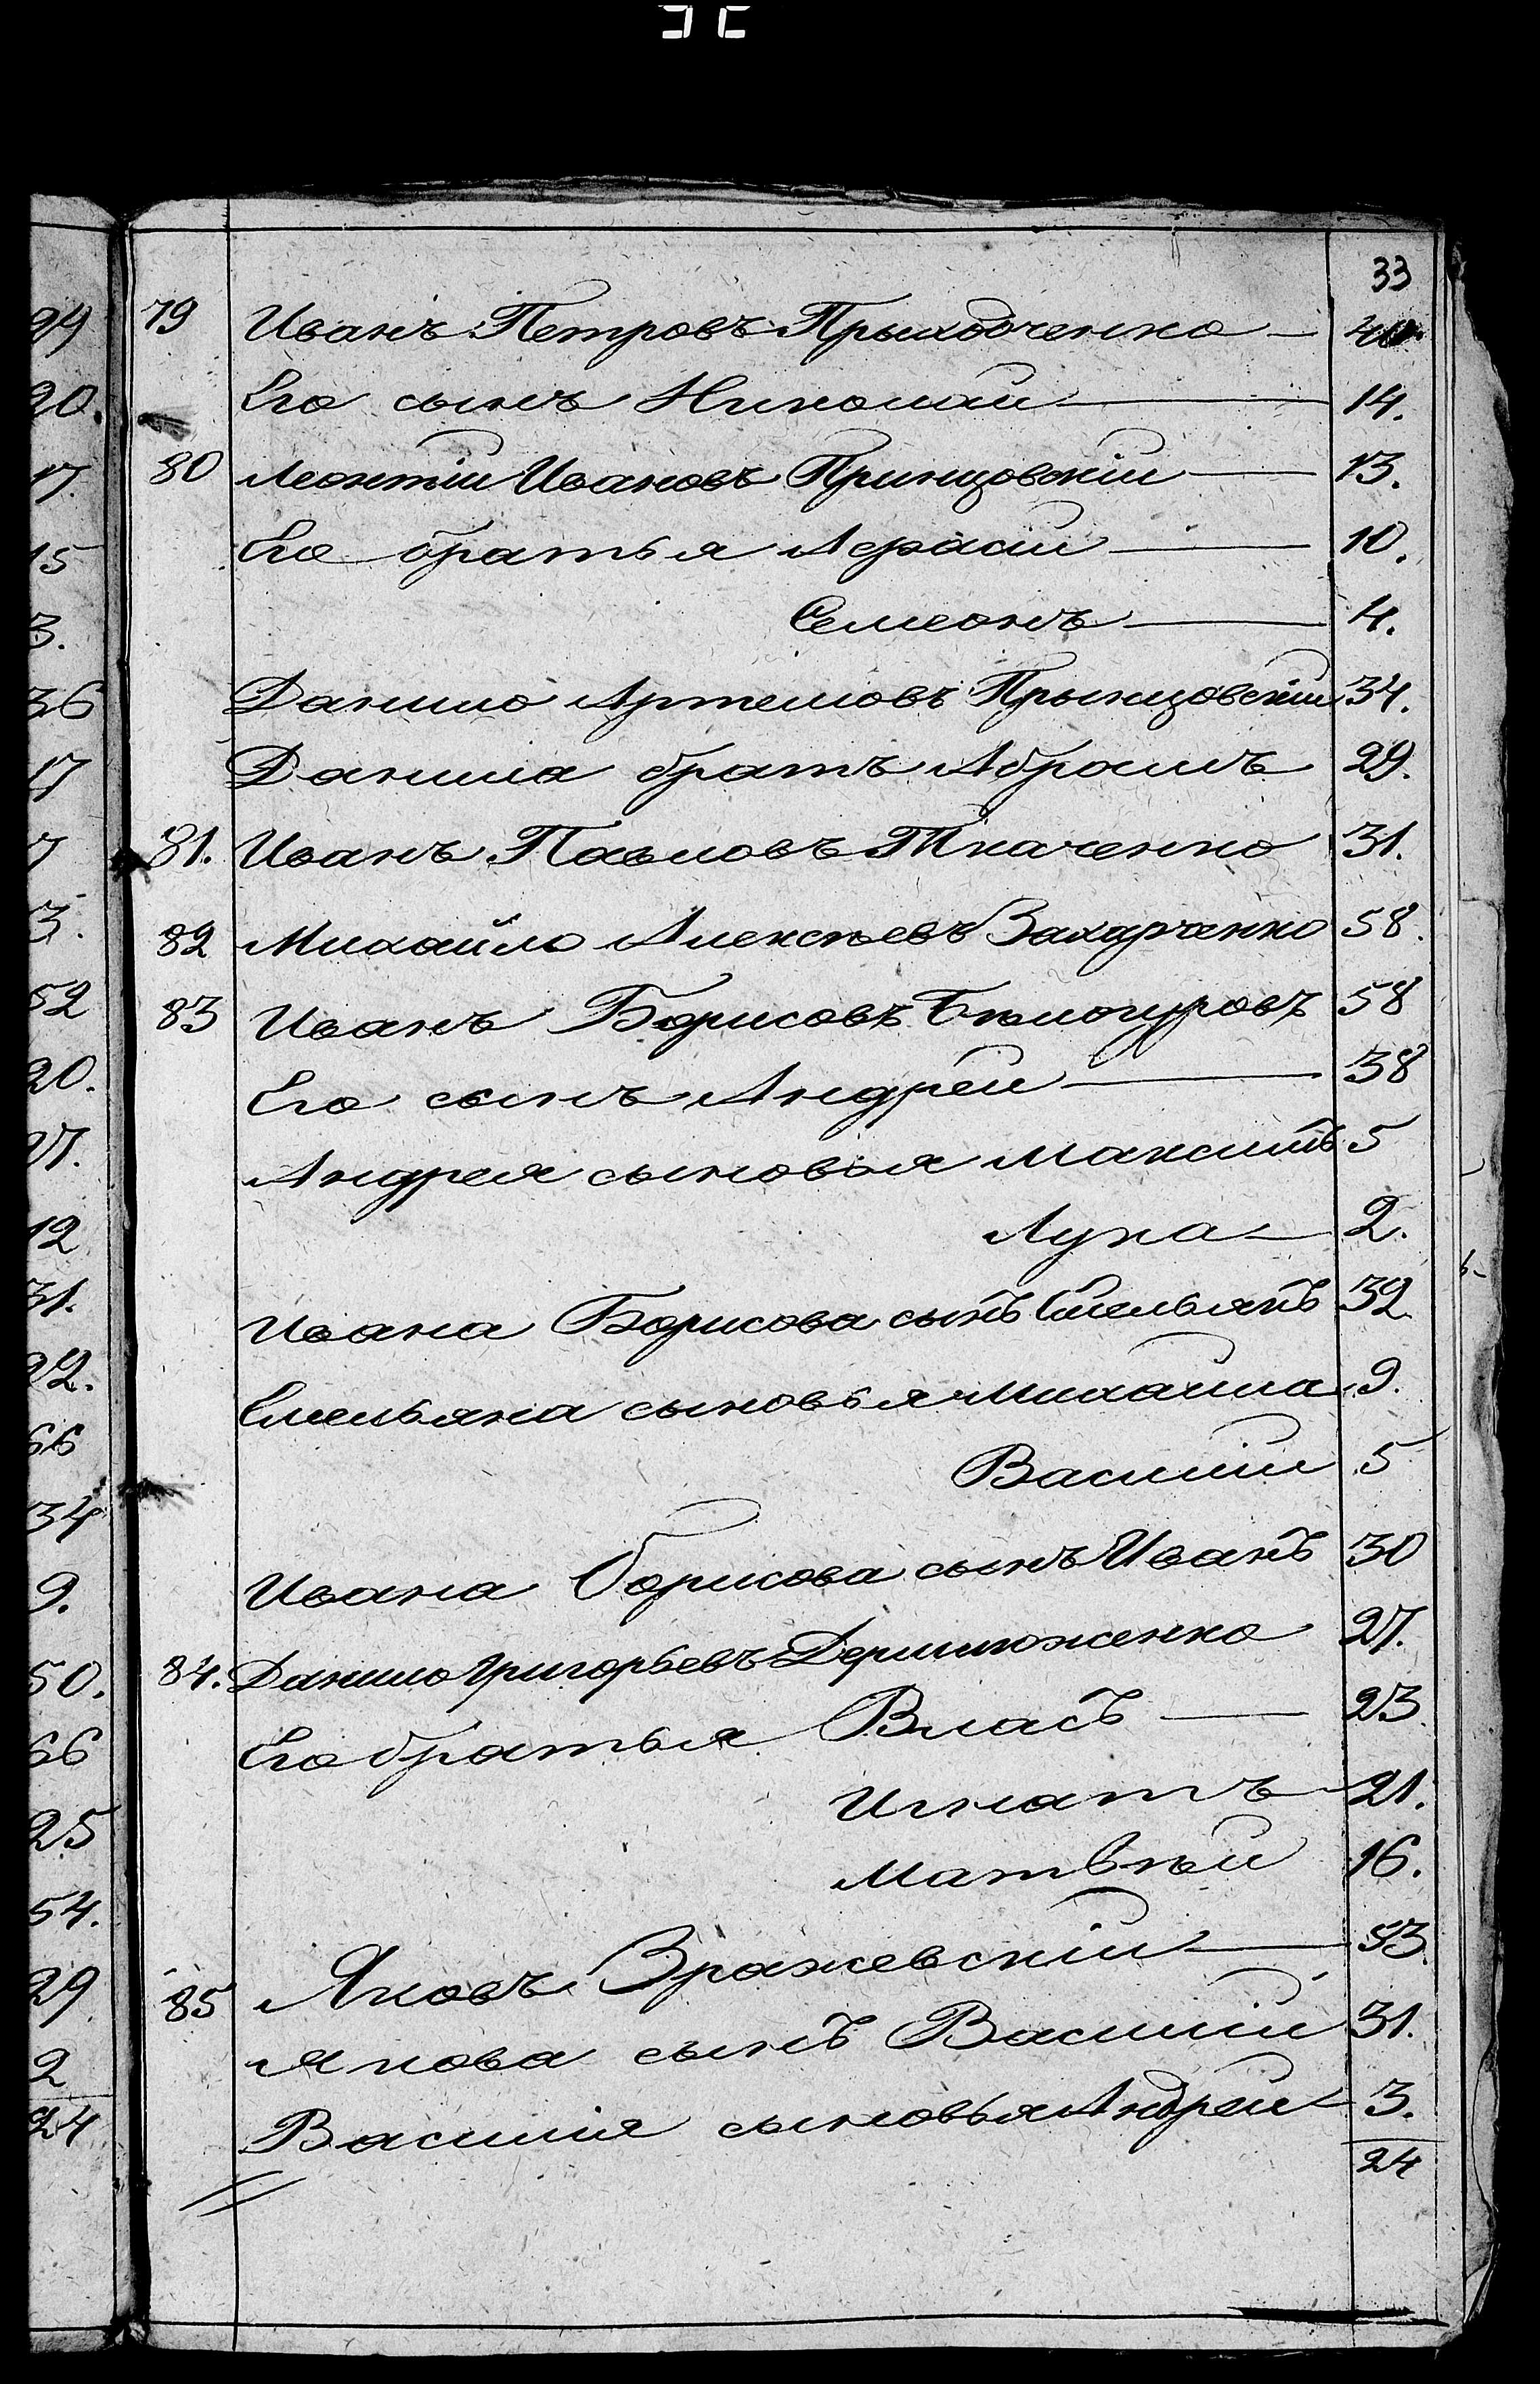 33
79 Иванъ Петровъ Прыходченко — 40
Его сынъ Николай — 14.
80 Леонтій Ивановъ Принцовскій — 13.
Его братья — 10.
Семеонъ — 4.
Данило Артемовъ Прынцовскій 34.
Данила братъ Абрамъ 29.
81. Иванъ Павловъ Ткаченко 31.
82 Михайло Алексѣевъ Захарченко 58.
83 Иванъ Борисовъ Бѣлогуровъ 58
Его сынъ Андрей — 38
Андрея сыновья Максимъ 5
Лука — 2.
Ивана Борисова сынъ Емельянъ 32
Емельяна сыновья Михаила 9.
Василій 5
Ивана Борисова сынъ Иванъ 30
84. Данило Григорьевъ 27.
Его братья Власъ — 23
Игнатъ 21.
Матвѣй 16.
85 Яковъ Вражевскій — 53
Якова сынъ Василій 31.
Василія сыновья Андрей 3.
24
94
20.
17.
15
3.
36
17
7
3.
52
20.
27.
12
31.
22.
66
34
9.
50.
66
25
54.
29
2
24